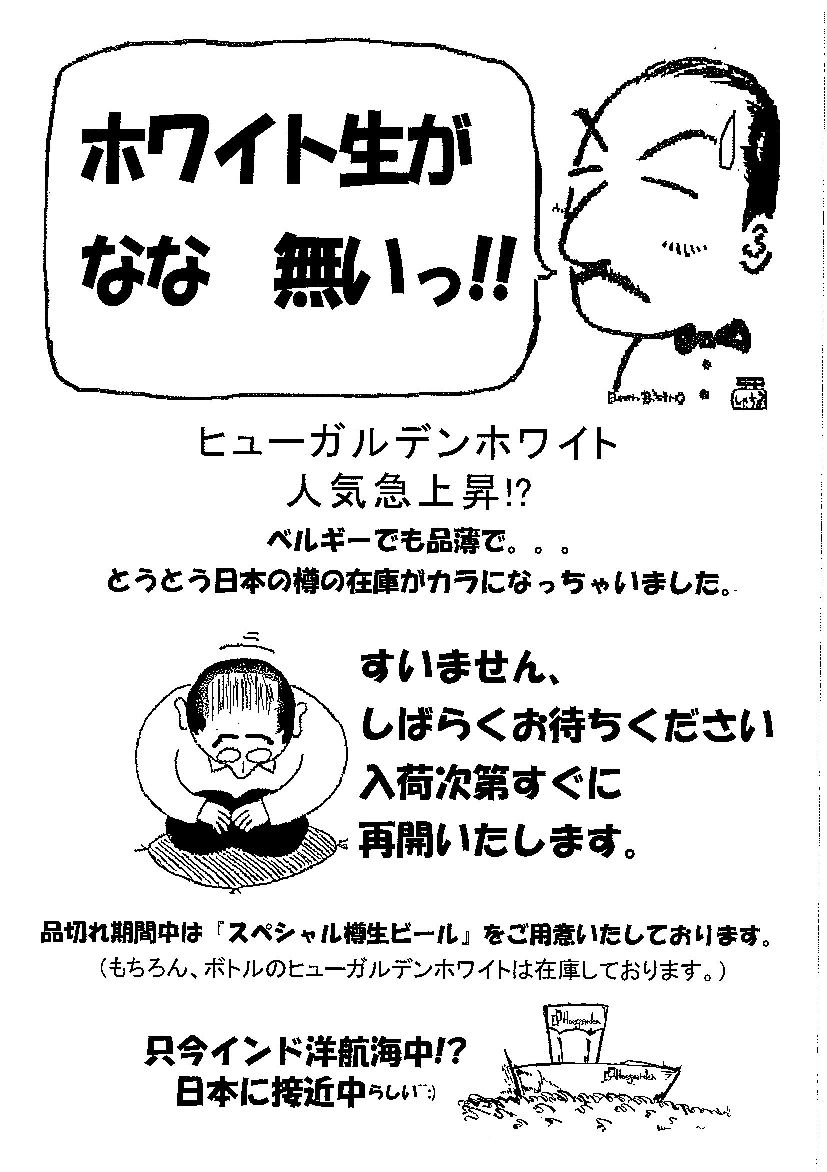 ホワイト生が
なな　無いっ!!
ヒューガルデンホワイト
人気急上昇!?
ベルギーでも品薄で。。。
とうとう日本の樽の在庫がカラになっちゃいました。
すいません、
しばらくお待ちください
入荷次第すぐに
再開いたします。
品切れ期間中は『スペシャル樽生ビール』をご用意いたしております。
(もちろん、ボトルのヒューガルデンホワイトは在庫しております。)
只今インド洋航海中!?
日本に接近中らしい^^;)
Hoegaarden
Hoegaarden